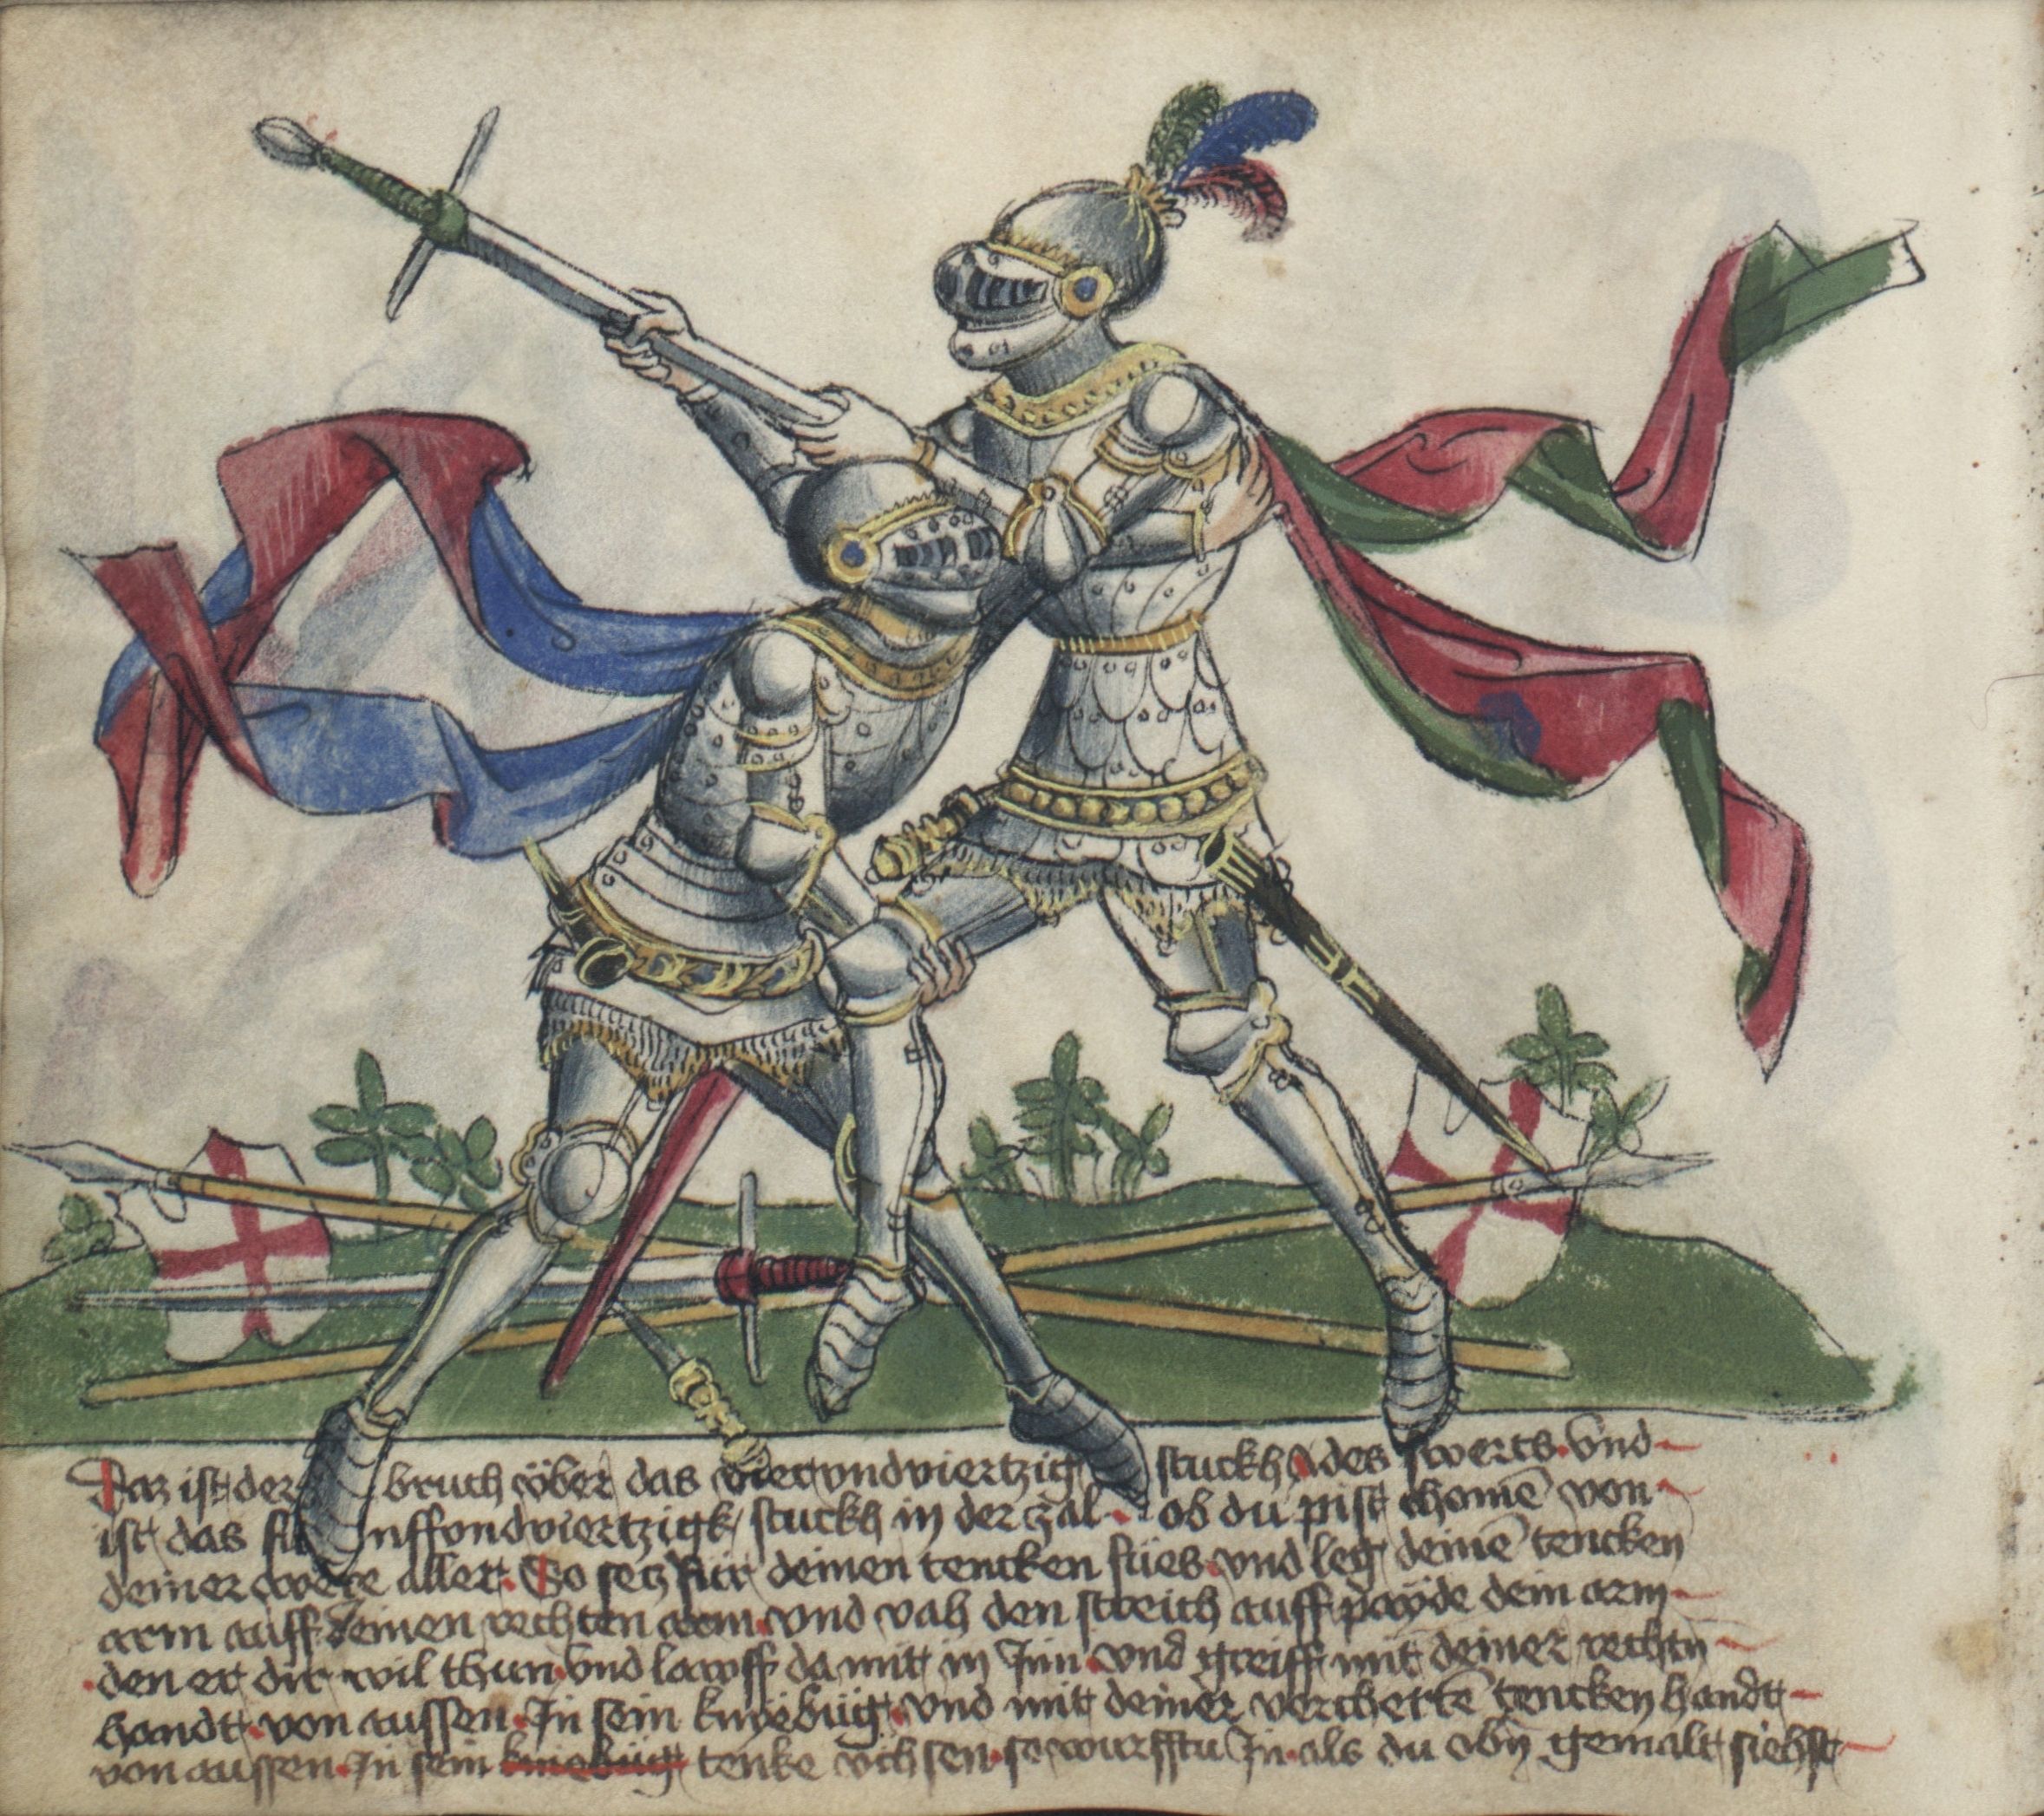 Daz ist der bruch vͤber das vierundviertzigk stuckh des swerts. Vnd
ist das fünffondviertzigk stuckh in der zal. ob du pist chomē von
deiner were aller. So setz für deinen tencken fües. vnd leg deinē tencken
arm auff deinen rechten arm. vnd vah den streich auff payde dein arm
den er dir wil thun. Vnd lawff da mit in Jm. vnd greiff mit deiner rechtn
handt. von aussen. In sein knyebüg. vnd mit deiner vercherten tencken handt
von aussen. In sein kniebüg tenke vchsen. so wurfftu Jn. als du obn gemalt siehst